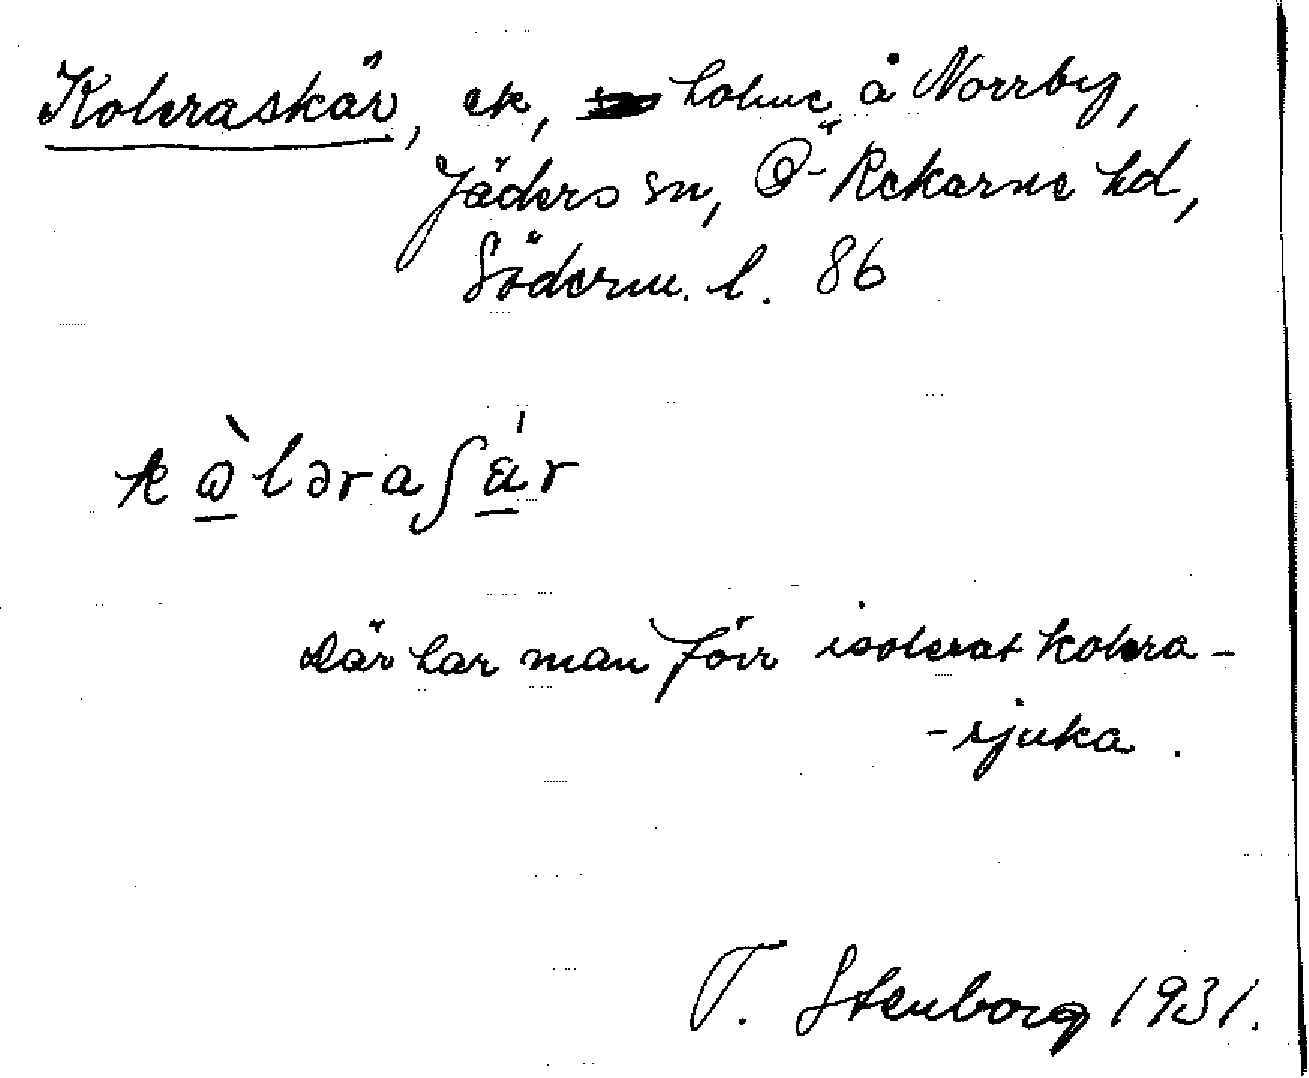 Koleraskär, ek, holme å Norrby,
Jäders sn, Ö-Rekarne hd,
Söderm. l. 86
kòləraʃä́r
Där har man förr isolerat kolera-
-sjuka.
T. Stenborg 1931.